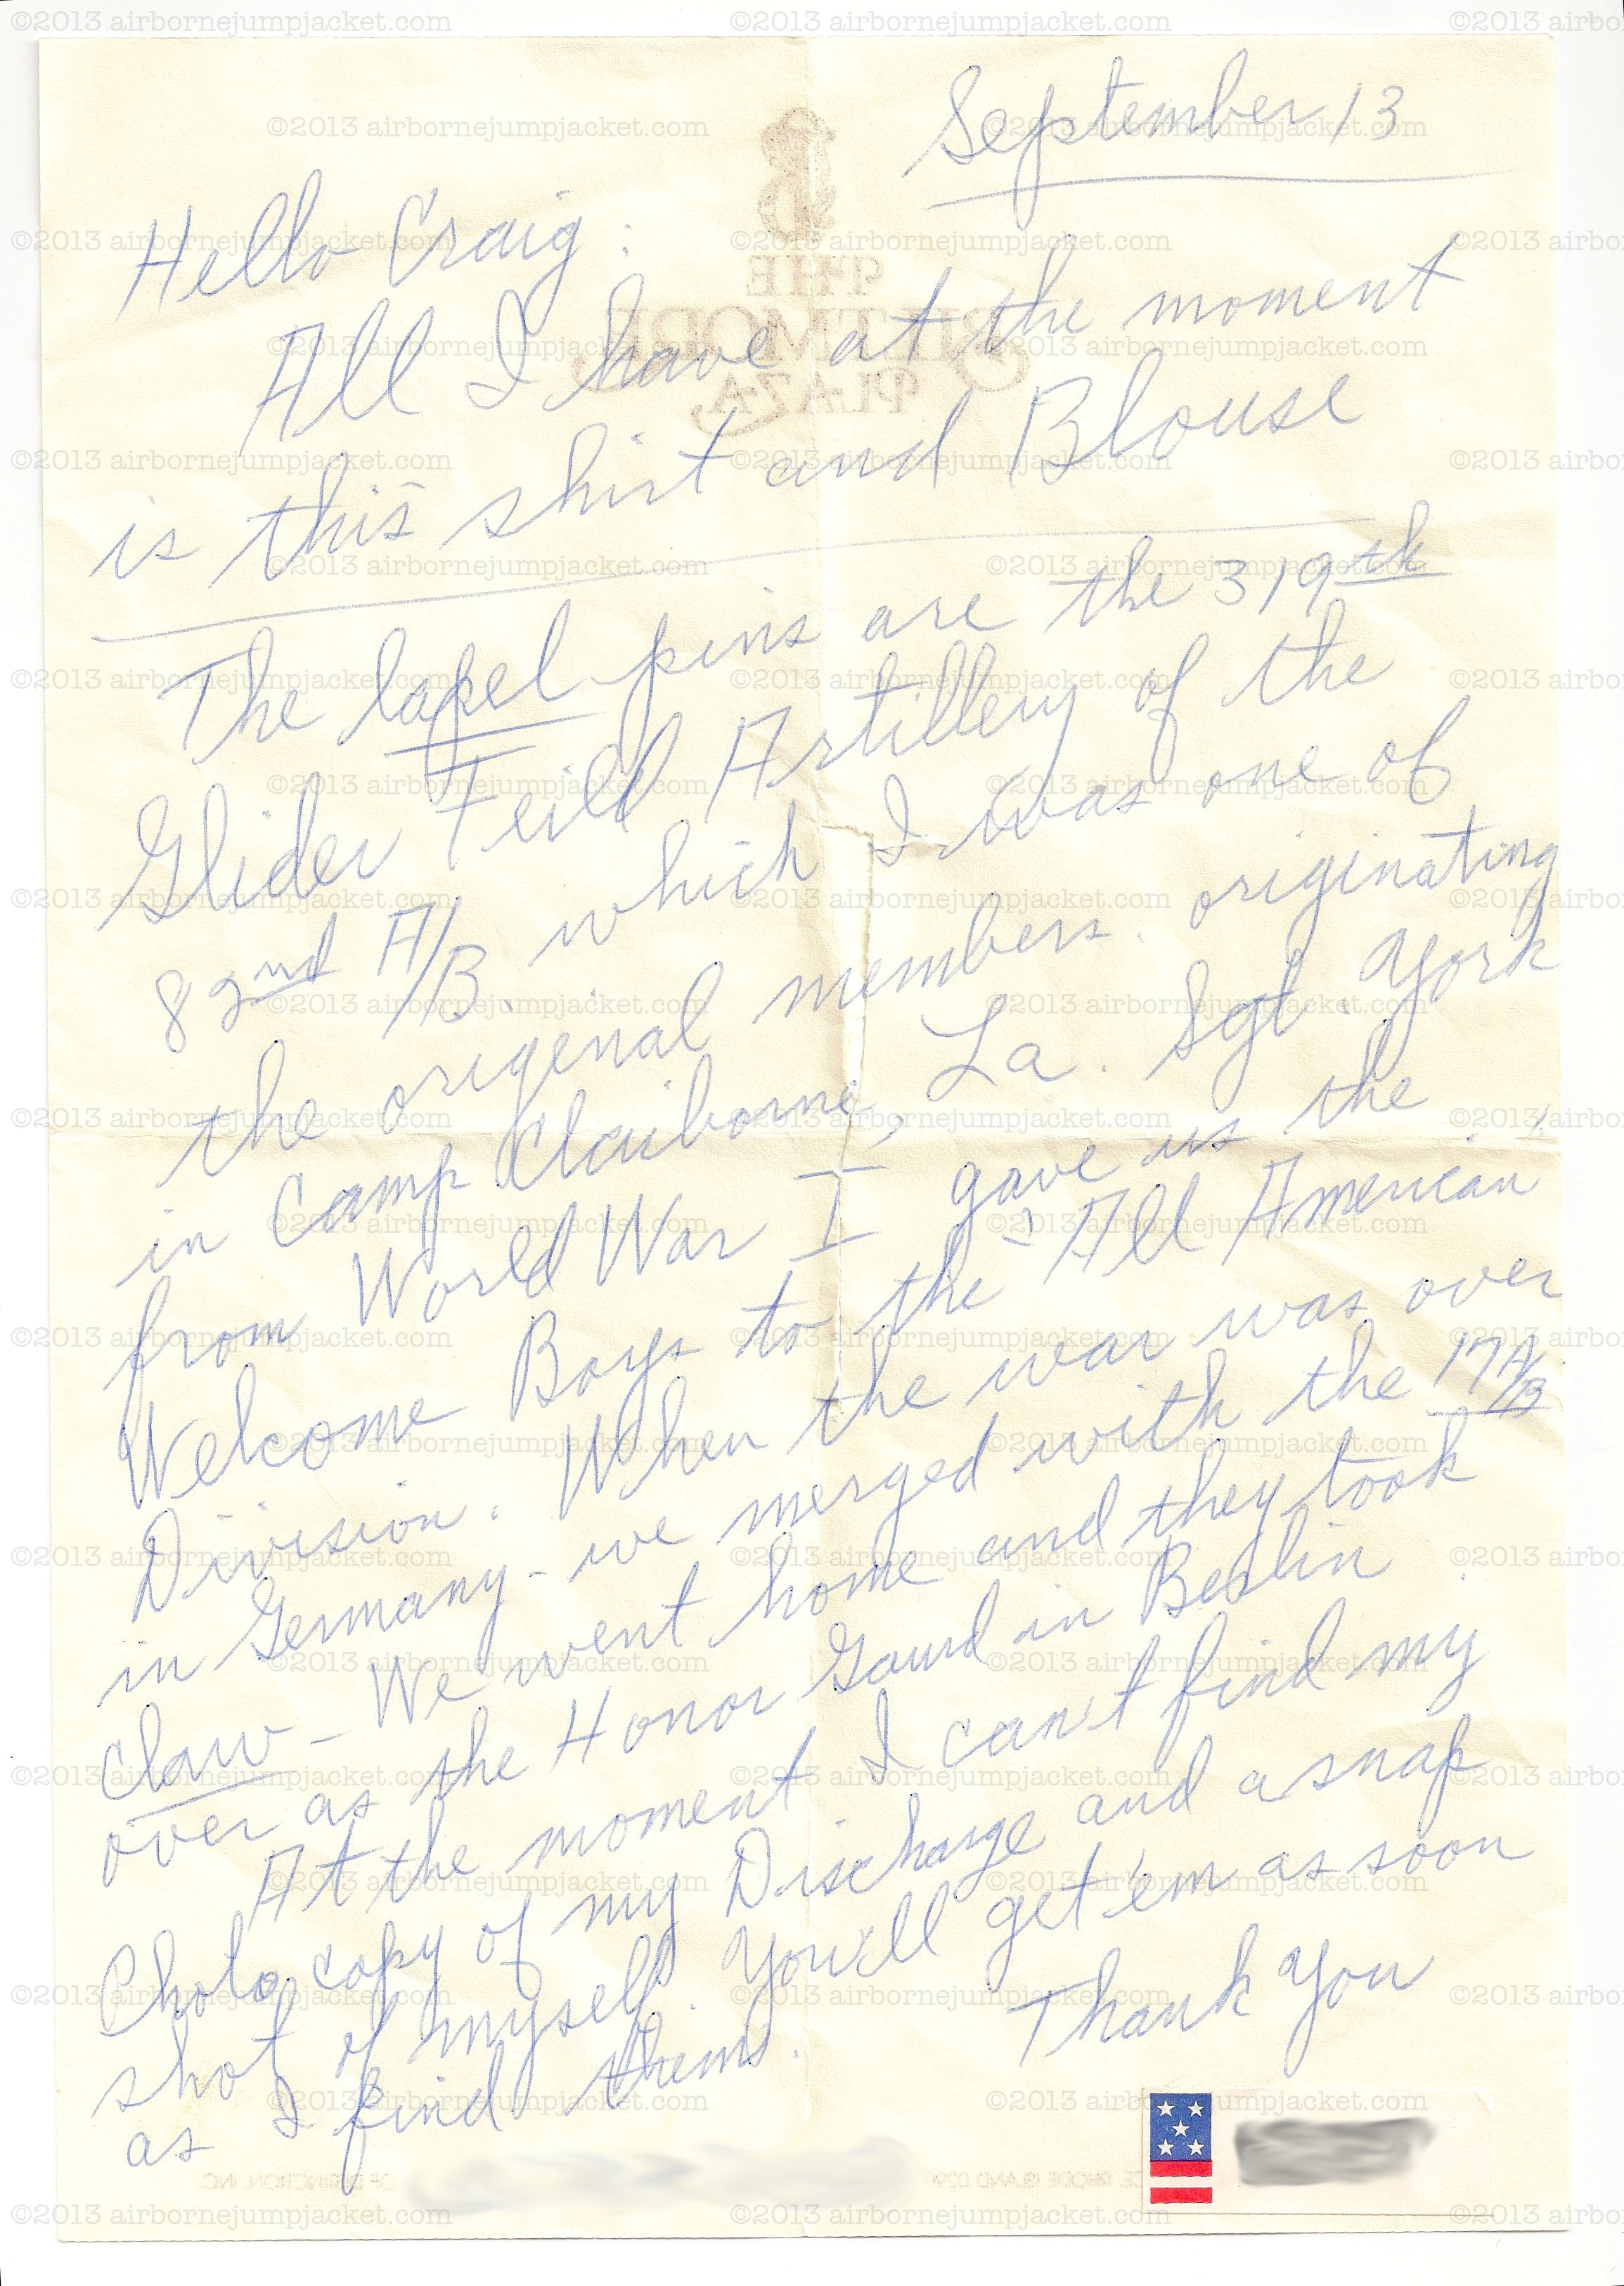 September 13
Hello Craig:
All I have at the moment
is this shirt and Blouse
The lapel pins are the 319th
Glider Feild Artillery of the
82nd A/B. which I was one of
the origenal members. originating
in Camp Claiborne, La. Sgt. York
from World War I gave us the
Welcome Boys to the "All American
Division. When the war was over
in Germany - we merged with the 17 A/B
claw - We went home and they took
over as the Honor Gaurd in Berlin
At the moment I can't find my
Photo copy of my Discharge and a snap
shot of myself. You'll get 'em as soon
as I find them.
Thank You
THE
BILTMORE
PLAZA
©2013 airbornejumpjacket.com